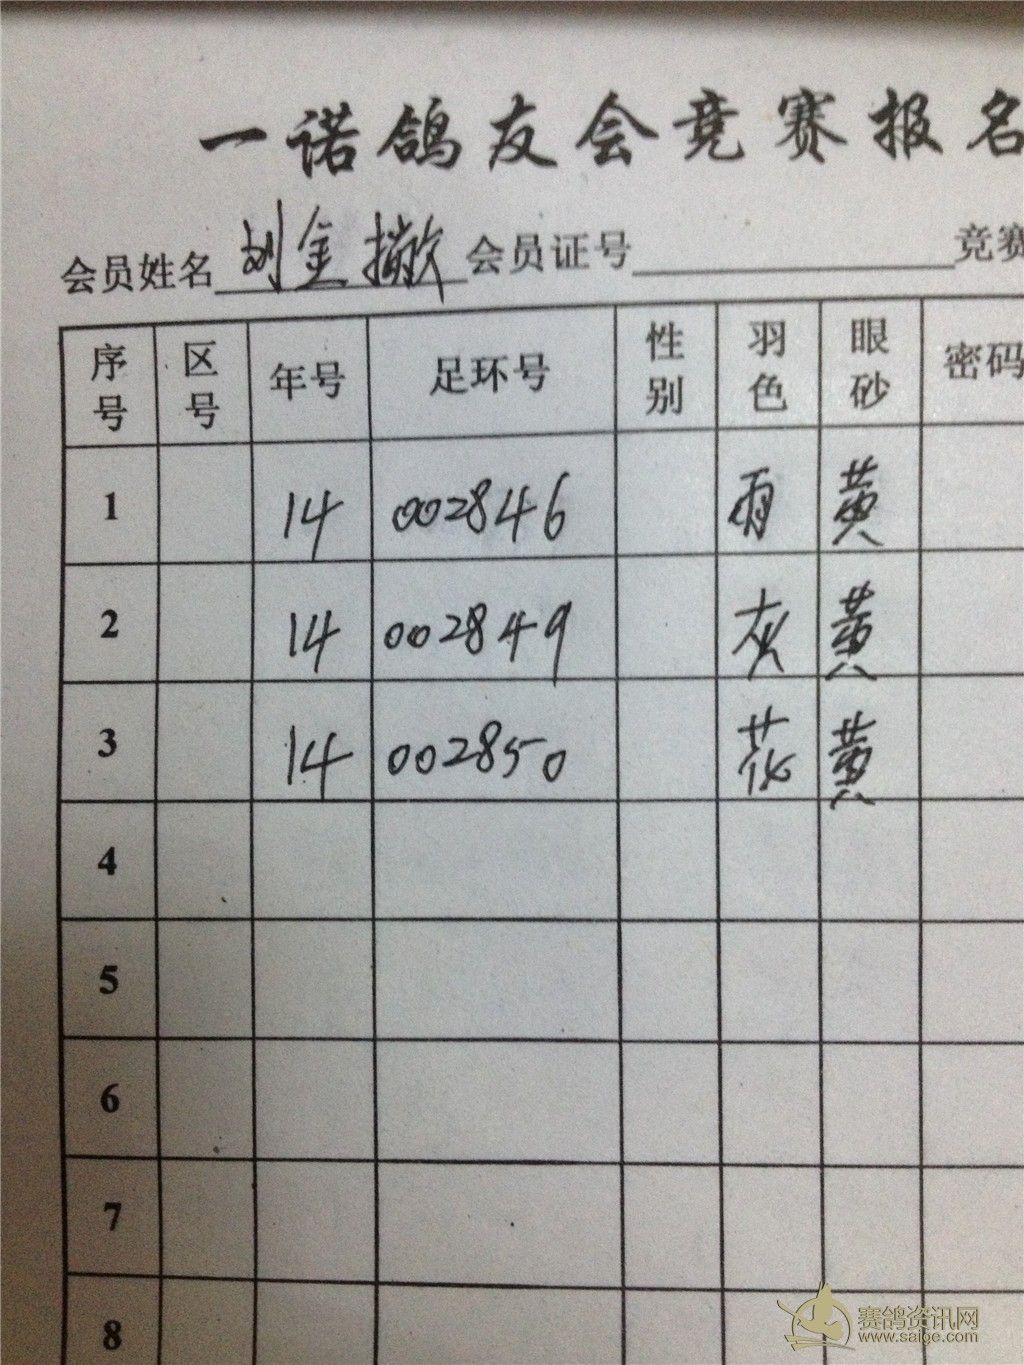 一诺鸽友会竞赛报名
会员姓名 刘金 会员证号 竞赛
序号 区号 年号 足环号 性别 羽色 眼砂 密码
1 14 002846 雨 黄
2 14 002849 灰 黄
3 14 002850 花 黄
4
5
6
7
8
赛鸽资讯网
www.saige.com